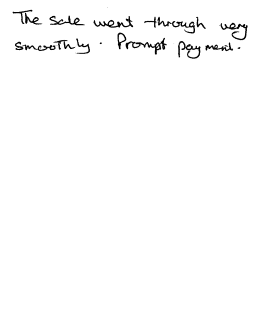 The sale went through very
smoothly. Prompt payment.